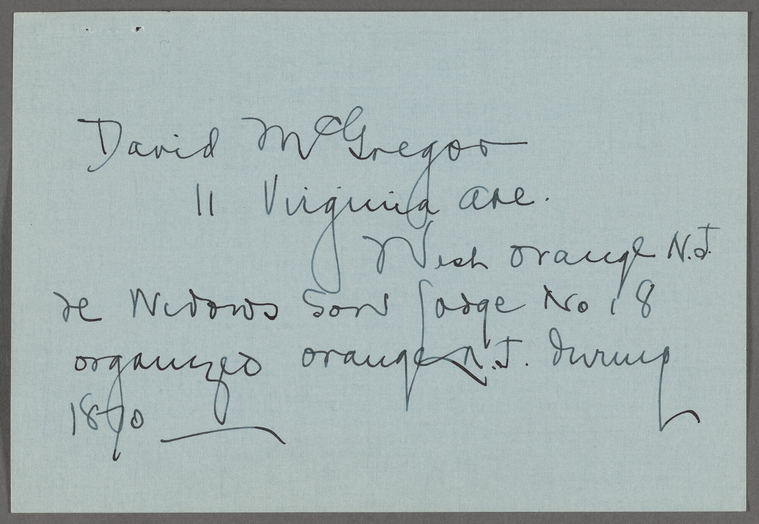 David McGregor
11 Virginia Ave.
West Orange N.J.
re Widows Son Lodge No 18
organized Orange N.J. During
1870